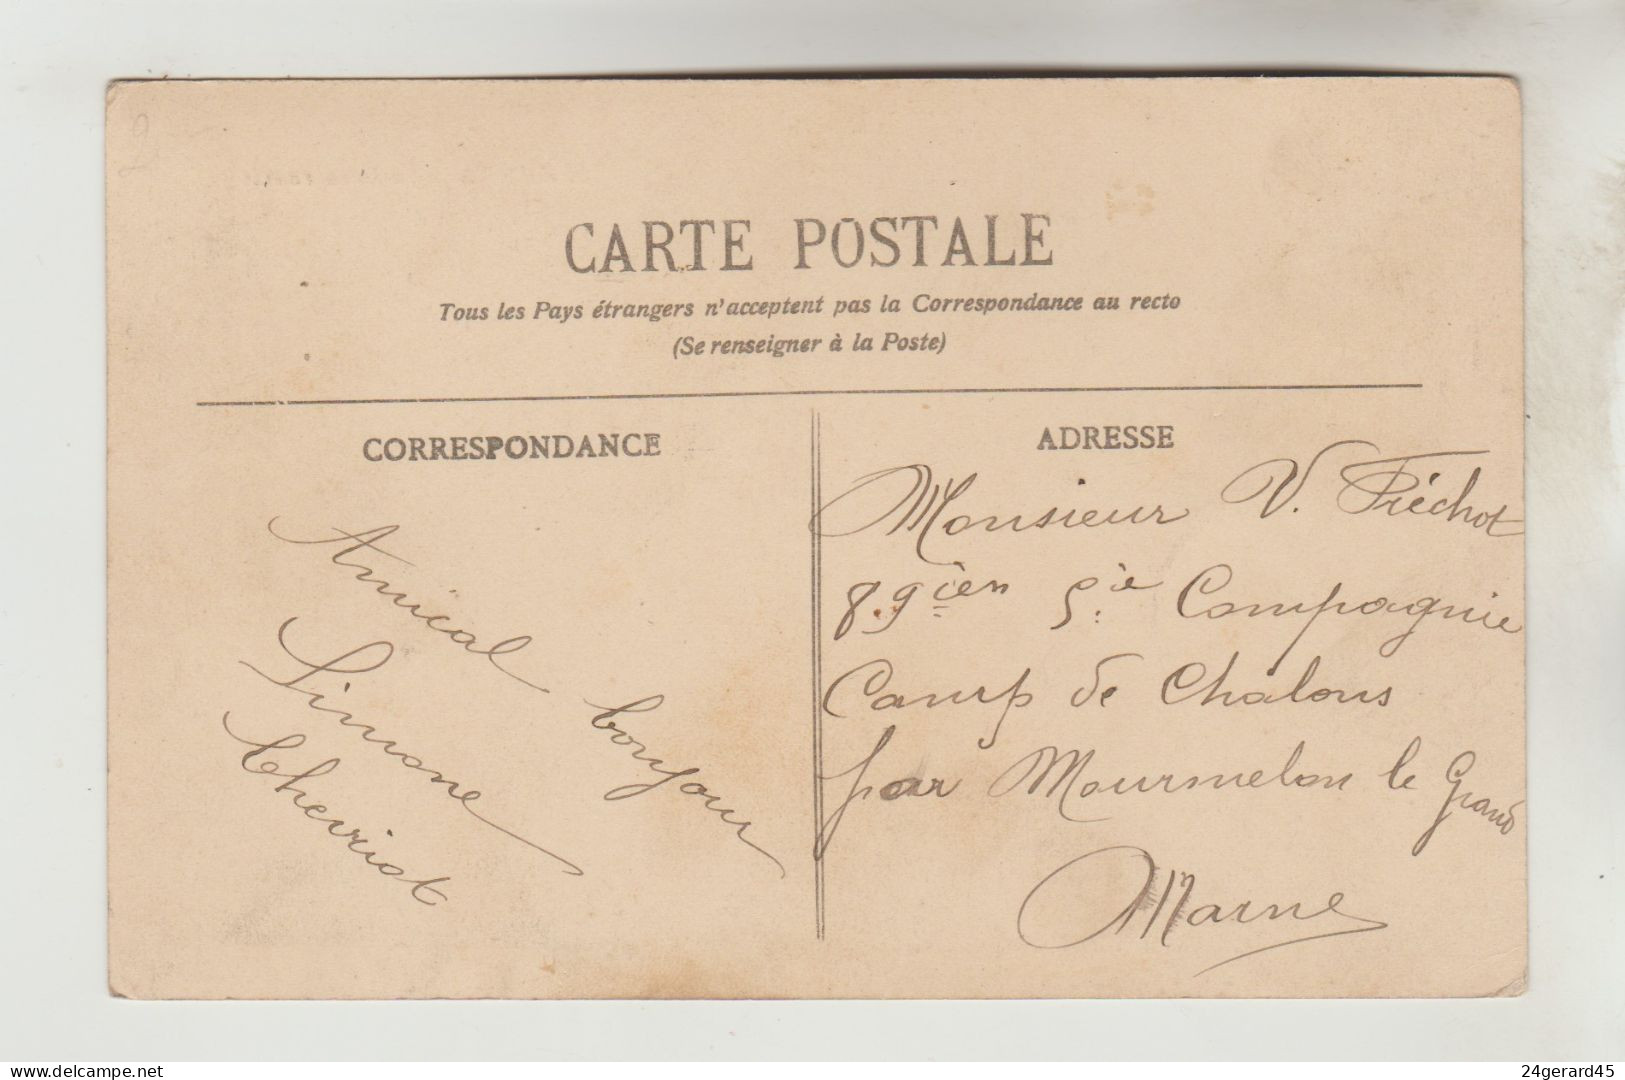 2
CARTE POSTALE
Tous les Pays étrangers n'acceptent pas la Correspondance au recto
(Se renseigner à la Poste)
CORRESPONDANCE
Amical bonjour
Simone
Chevriot
ADRESSE
Monsieur V. Fréchot
89ien 5.ie Compagnie
Camp de Chalons
par Mourmelon le Grand
Marne
www.delcampe.net
24gerard45